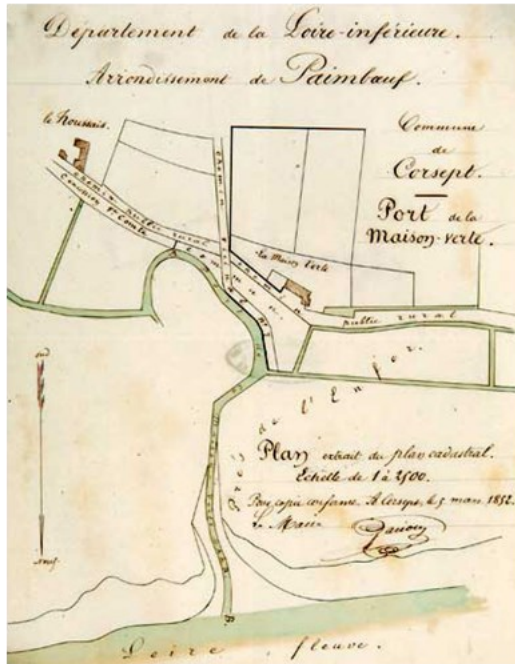 Département de la Loire-inférieure.
Arrondissement de Paimbœuf.
Commune
de
Corsept.
Port de la
Maison-Verte.
la Houssais.
Chemin public rural
Chemin
la Maison Verte
public rural
Prés de l'Enfer.
Plan extrait du plan cadastral.
Echelle de 1 à 2500.
Pour copie conforme. A Corsept, le 5 mars 1852.
Le Maire
Sud
Nord
Loire fleuve.